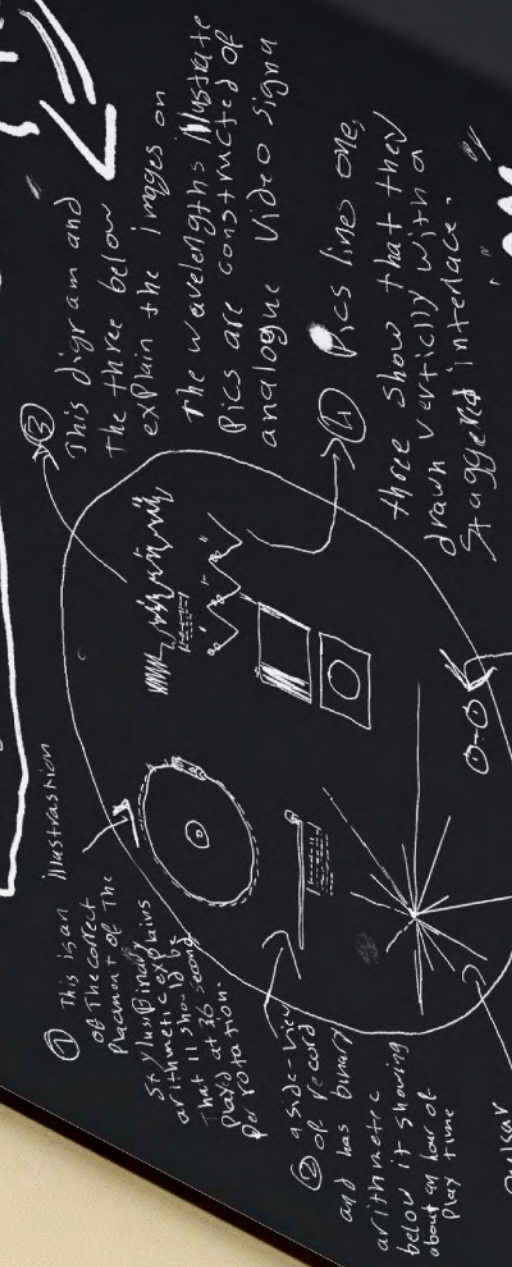 ① This is an illustrastion
of the correct
Placment of The
Stylus Binary
arithmetic explains
That it should be
Playd at 36 second
per rotation.
② a side-view
of record
and has binary
arithmetric
below it showing
about an hour of
Play time
③
This digram and
the three below
explain the images on
The wavelengths illustrate
Pics are constructed of
analogue Video Signa
④ Pics lines one,
three show that they
drawn vertically with a
Staggered interlace.
Pulsar